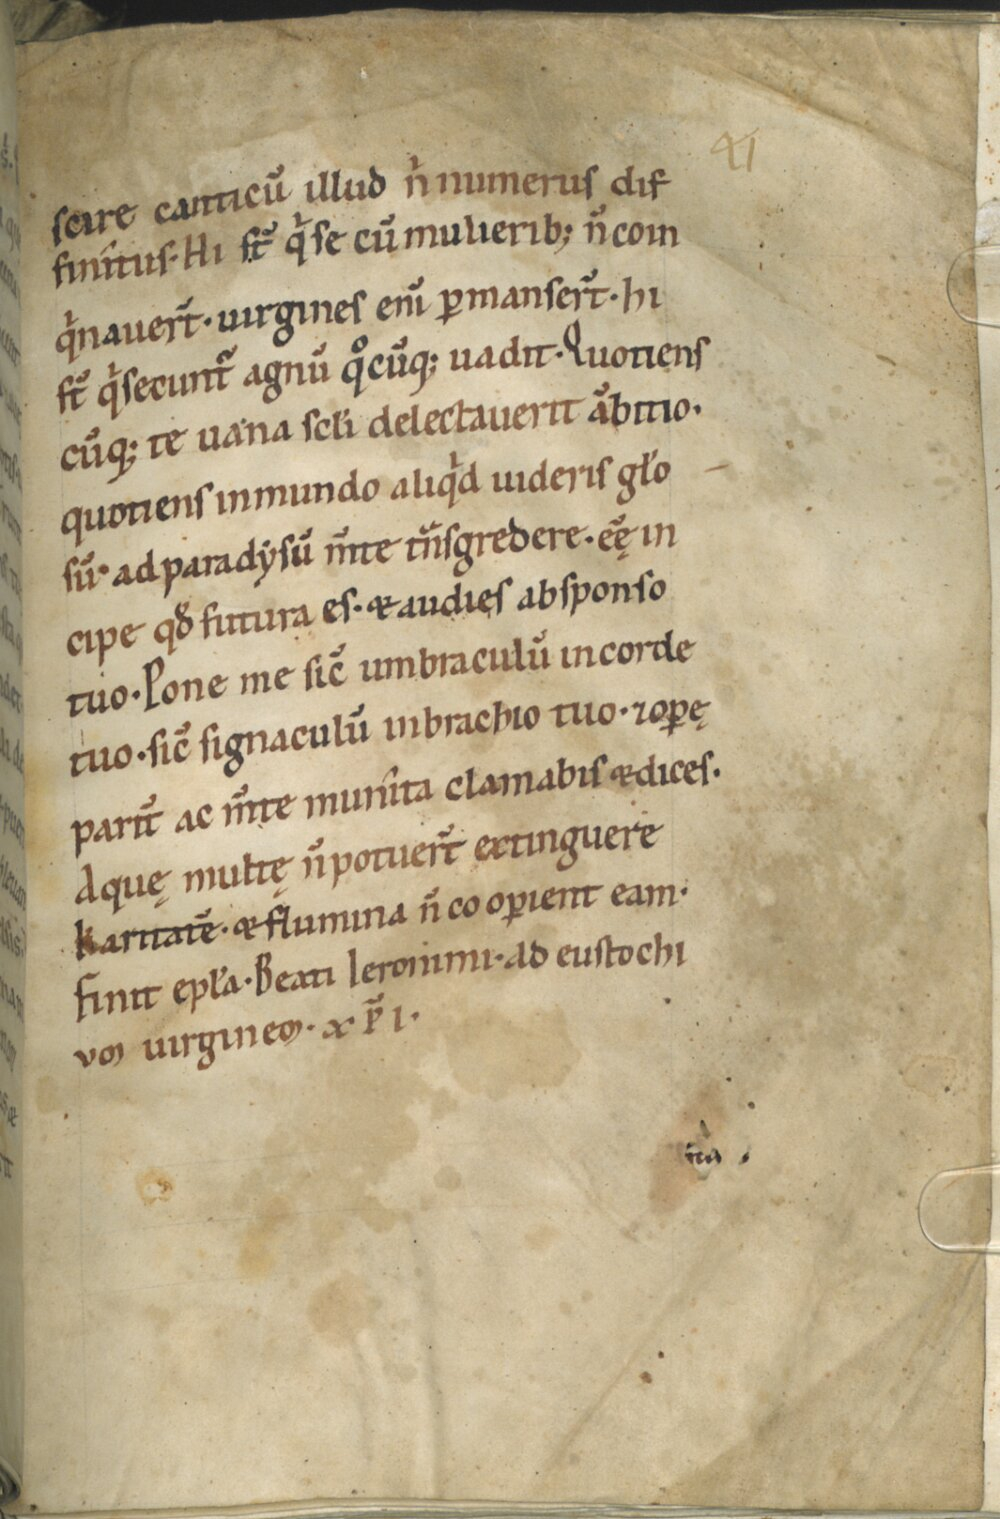 41
scire canticū illud n̄ numerus dif
finitus. Hi st̄ qi se cū mulierib; n̄ coin
qinauert̄. uirgines enī ꝑmansert̄. hi
st̄ qi secunt̄ agnū qocūq; uadit. Quotiens
cūq; te uana scli delectauerit ābitio.
quotiens inmundo aliqid uideris glo
sū. ad paradẏsū m̄te tn̄sgredere. eę̄ in
cipe qđ futura es. & audies absponso
tuo. Pone me sic̄ umbraculū incorde
tuo. sic̄ signaculū inbrachio tuo. ⁊oꝑę
parit̄ ac m̄te munita clamabis & dices.
Aquę multę n̄ potuert̄ extinguere
karitatē. & flumina n̄ cooꝑient eam.
finit epła. Beati Ieronimi. Ad eustochi
vm uirginem. xp̄i.